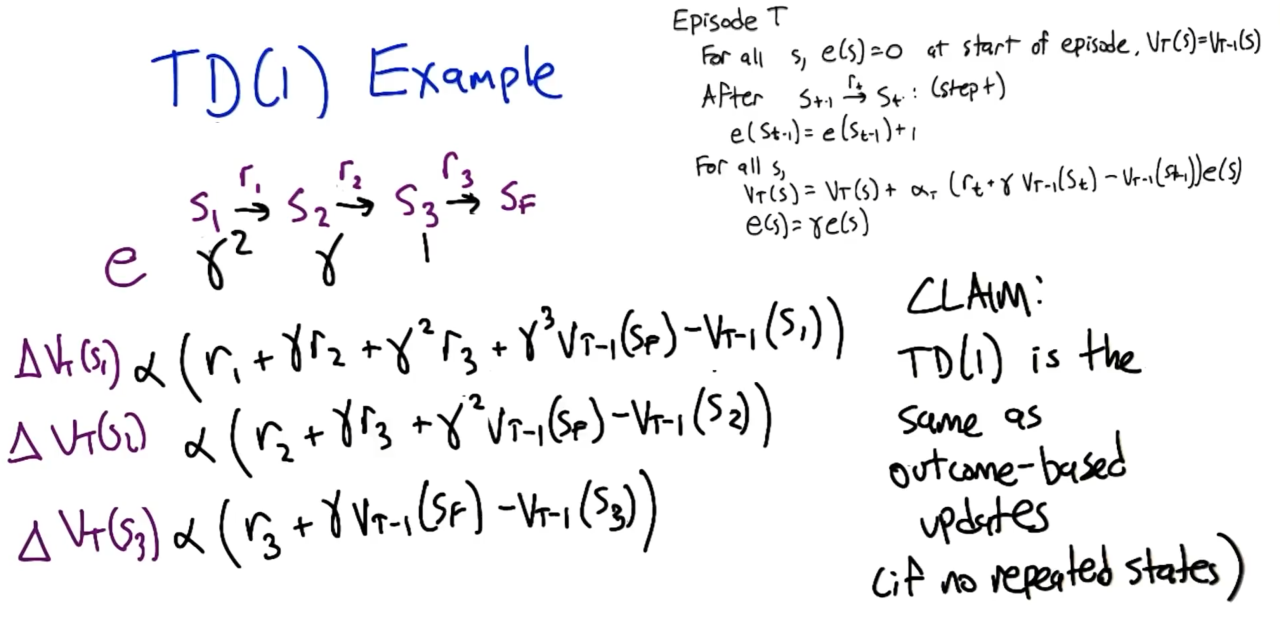 TD(1) Example
Episode T
For all s, e(s)=0 at start of episode, V_T(s)=V_{T-1}(s)
After S_{t-1} →^{r_t} S_t: (step t)
e(S_{t-1})=e(S_{t-1})+1
For all s,
V_T(s)=V_T(s)+ α_T (r_t+γ V_{T-1}(S_t) -V_{T-1}(S_{t-1}))e(s)
e(s)=γe(s)
r_1 r_2 r_3
S_1 → S_2 → S_3 → S_F
e γ^2 γ 1
ΔV_T(S_1) α (r_1 + γr_2 + γ^2 r_3 + γ^3 V_{T-1}(S_F) -V_{T-1}(S_1))
ΔV_T(S_2) α (r_2 + γr_3 + γ^2 V_{T-1}(S_F) -V_{T-1}(S_2))
ΔV_T(S_3) α (r_3 + γ V_{T-1}(S_F) -V_{T-1}(S_3))
CLAIM:
TD(1) is the
same as
outcome-based
updates
(if no repeated states)